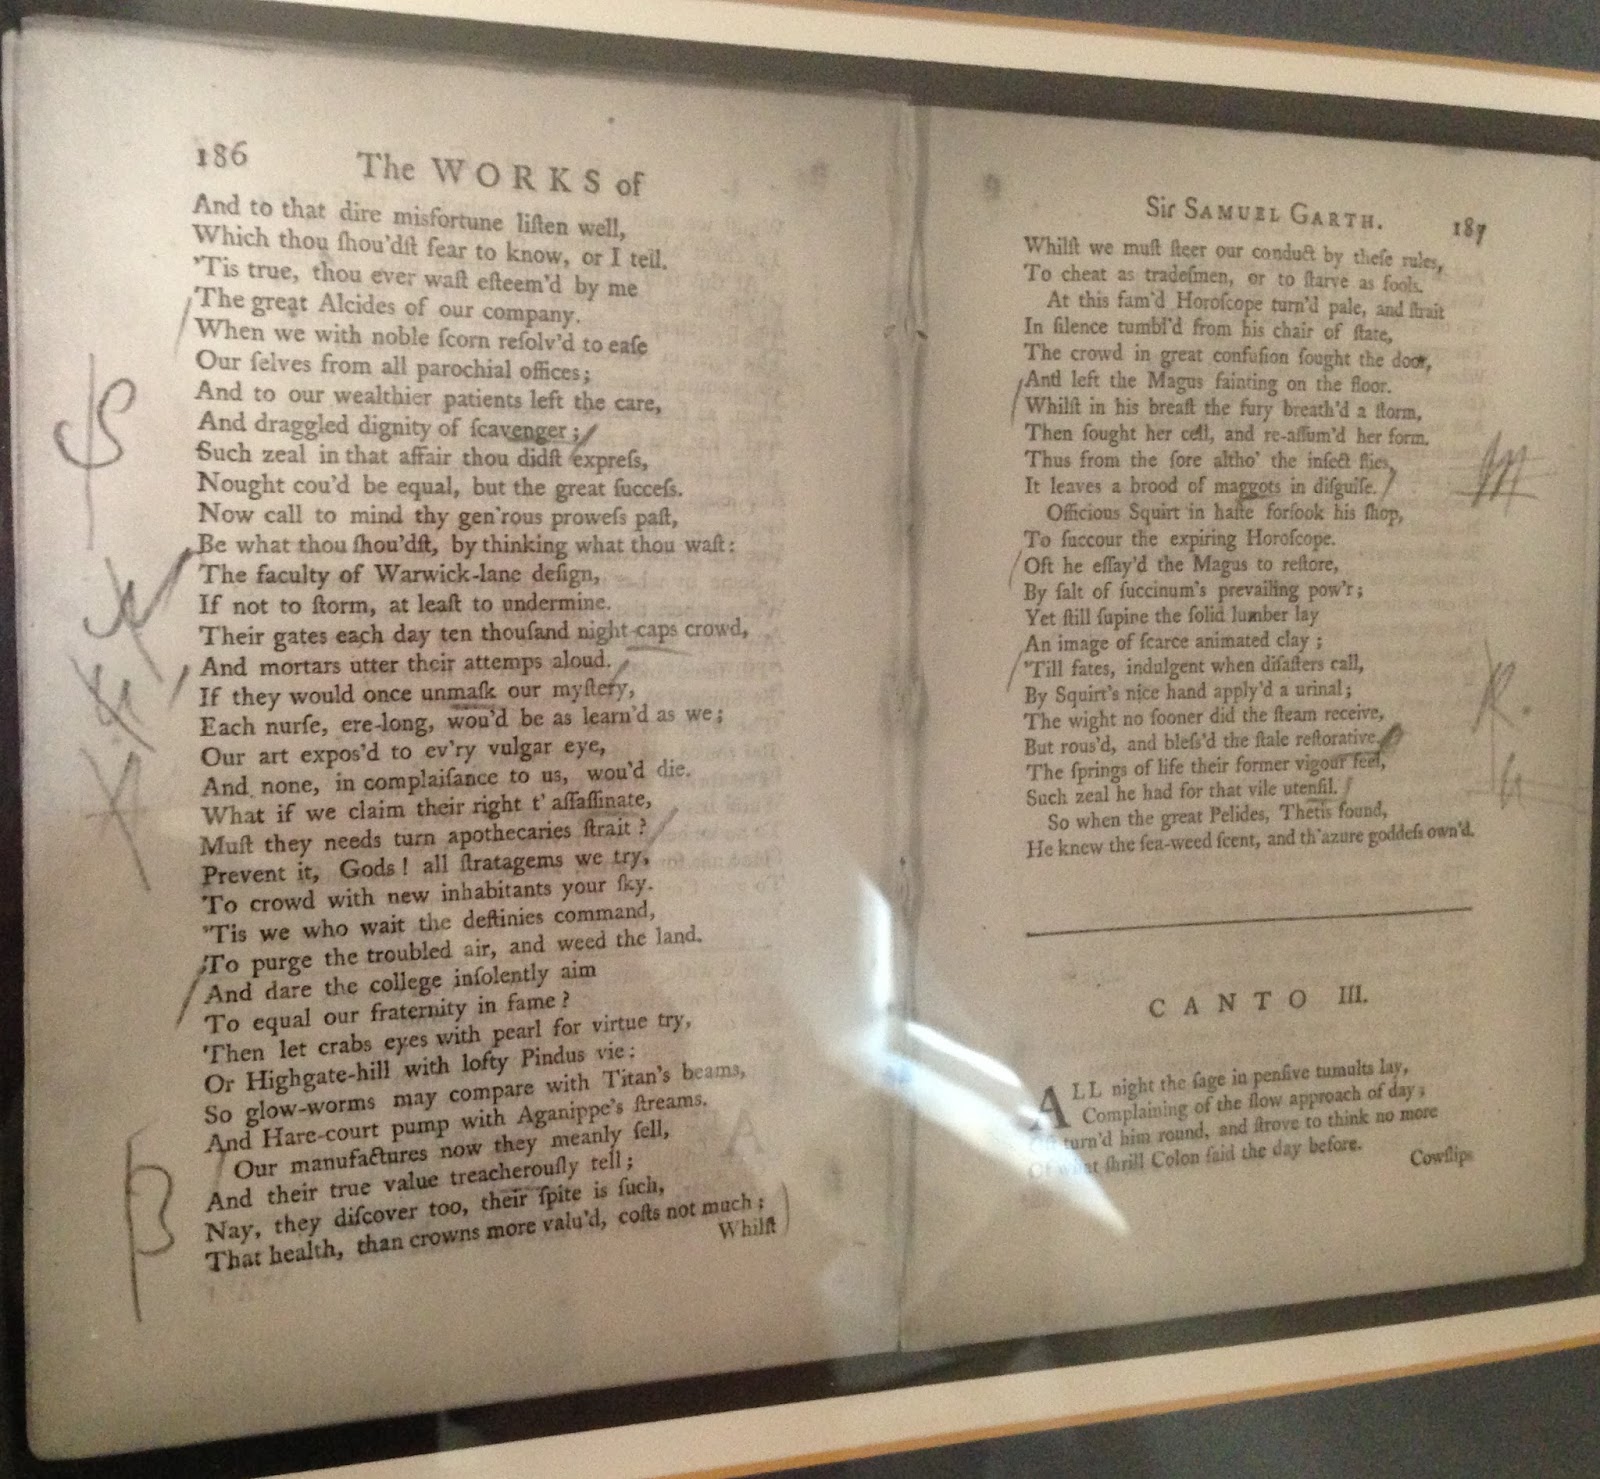 186 The WORKS of
And to that dire misfortune liſten well,
Which thou ſhou'dſt fear to know, or I tell.
'Tis true, thou ever waſt eſteem'd by me
The great Alcides of our company.
When we with noble ſcorn reſolv'd to eaſe
Our ſelves from all parochial offices;
And to our wealthier patients left the care,
And draggled dignity of ſcavenger;
Such zeal in that affair thou didſt expreſs,
Nought cou'd be equal, but the great ſucceſs.
Now call to mind thy gen'rous proweſs paſt,
Be what thou ſhou'dſt, by thinking what thou waſt:
The faculty of Warwick-lane deſign,
If not to ſtorm, at leaſt to undermine.
Their gates each day ten thouſand night-caps crowd,
And mortars utter their attemps aloud.
If they would once unmaſk our myſtery,
Each nurſe, ere-long, wou'd be as learn'd as we;
Our art expos'd to ev'ry vulgar eye,
And none, in complaiſance to us, wou'd die.
What if we claim their right t' aſſaſſinate,
Muſt they needs turn apothecaries ſtrait?
Prevent it, Gods! all ſtratagems we try,
To crowd with new inhabitants your ſky.
'Tis we who wait the deſtinies command,
To purge the troubled air, and weed the land.
And dare the college inſolently aim
To equal our fraternity in fame?
Then let crabs eyes with pearl for virtue try,
Or Highgate-hill with lofty Pindus vie;
So glow-worms may compare with Titan's beams,
And Hare-court pump with Aganippe's ſtreams.
Our manufactures now they meanly ſell,
And their true value treacherouſly tell;
Nay, they diſcover too, their ſpite is ſuch,
That health, than crowns more valu'd, coſts not much;
Whilſt
Sir SAMUEL GARTH. 187
Whilſt we muſt ſteer our conduct by theſe rules,
To cheat as tradeſmen, or to ſtarve as fools.
At this fam'd Horoſcope turn'd pale, and ſtrait
In ſilence tumbl'd from his chair of ſtate,
The crowd in great confuſion ſought the door,
And left the Magus fainting on the floor.
Whilſt in his breaſt the fury breath'd a ſtorm,
Then ſought her cell, and re-aſſum'd her form.
Thus from the ſore altho' the inſect flies,
It leaves a brood of maggots in diſguiſe.
Officious Squirt in haſte forſook his ſhop,
To ſuccour the expiring Horoſcope.
Oft he eſſay'd the Magus to reſtore,
By ſalt of ſuccinum's prevailing pow'r;
Yet ſtill ſupine the ſolid lumber lay
An image of ſcarce animated clay;
'Till fates, indulgent when diſaſters call,
By Squirt's nice hand apply'd a urinal;
The wight no ſooner did the ſteam receive,
But rous'd, and bleſs'd the ſtale reſtorative.
The ſprings of life their former vigour feel,
Such zeal he had for that vile utenſil.
So when the great Pelides, Thetis found,
He knew the ſea-weed ſcent, and th'azure goddeſs own'd.
CANTO III.
ALL night the ſage in penſive tumults lay,
Complaining of the ſlow approach of day;
turn'd him round, and ſtrove to think no more
Of what ſhrill Colon ſaid the day before.
Cowſlips